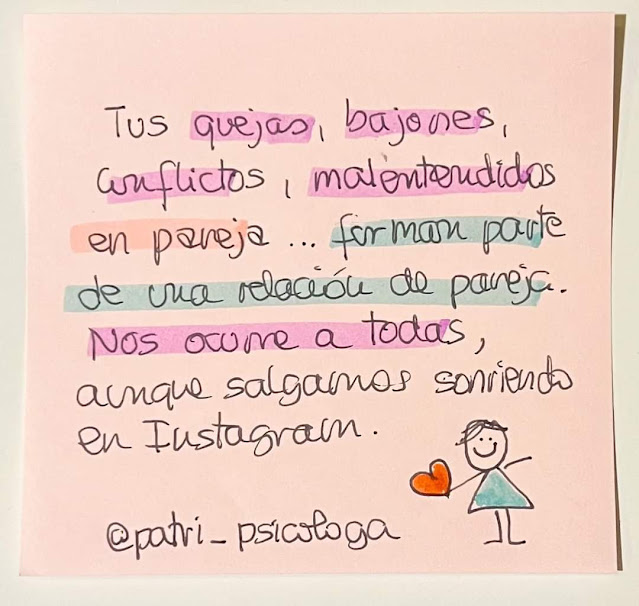 Tus quejas, bajones,
conflictos, malentendidos
en pareja... forman parte
de una relación de pareja.
Nos ocurre a todas,
aunque salgamos sonriendo
en Instagram.
@patri_psicologa